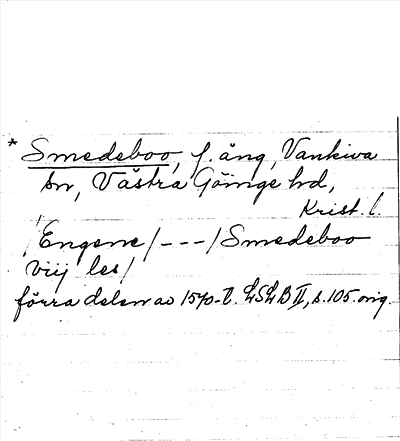 * Smedeboo, f. äng, Vankiva
sn, Västra Göinge hd,
Krist. l.
/Engene/ - - - / Smedeboo
viij les/
förra delen av 1570-t. LSLB II, s. 105. orig.